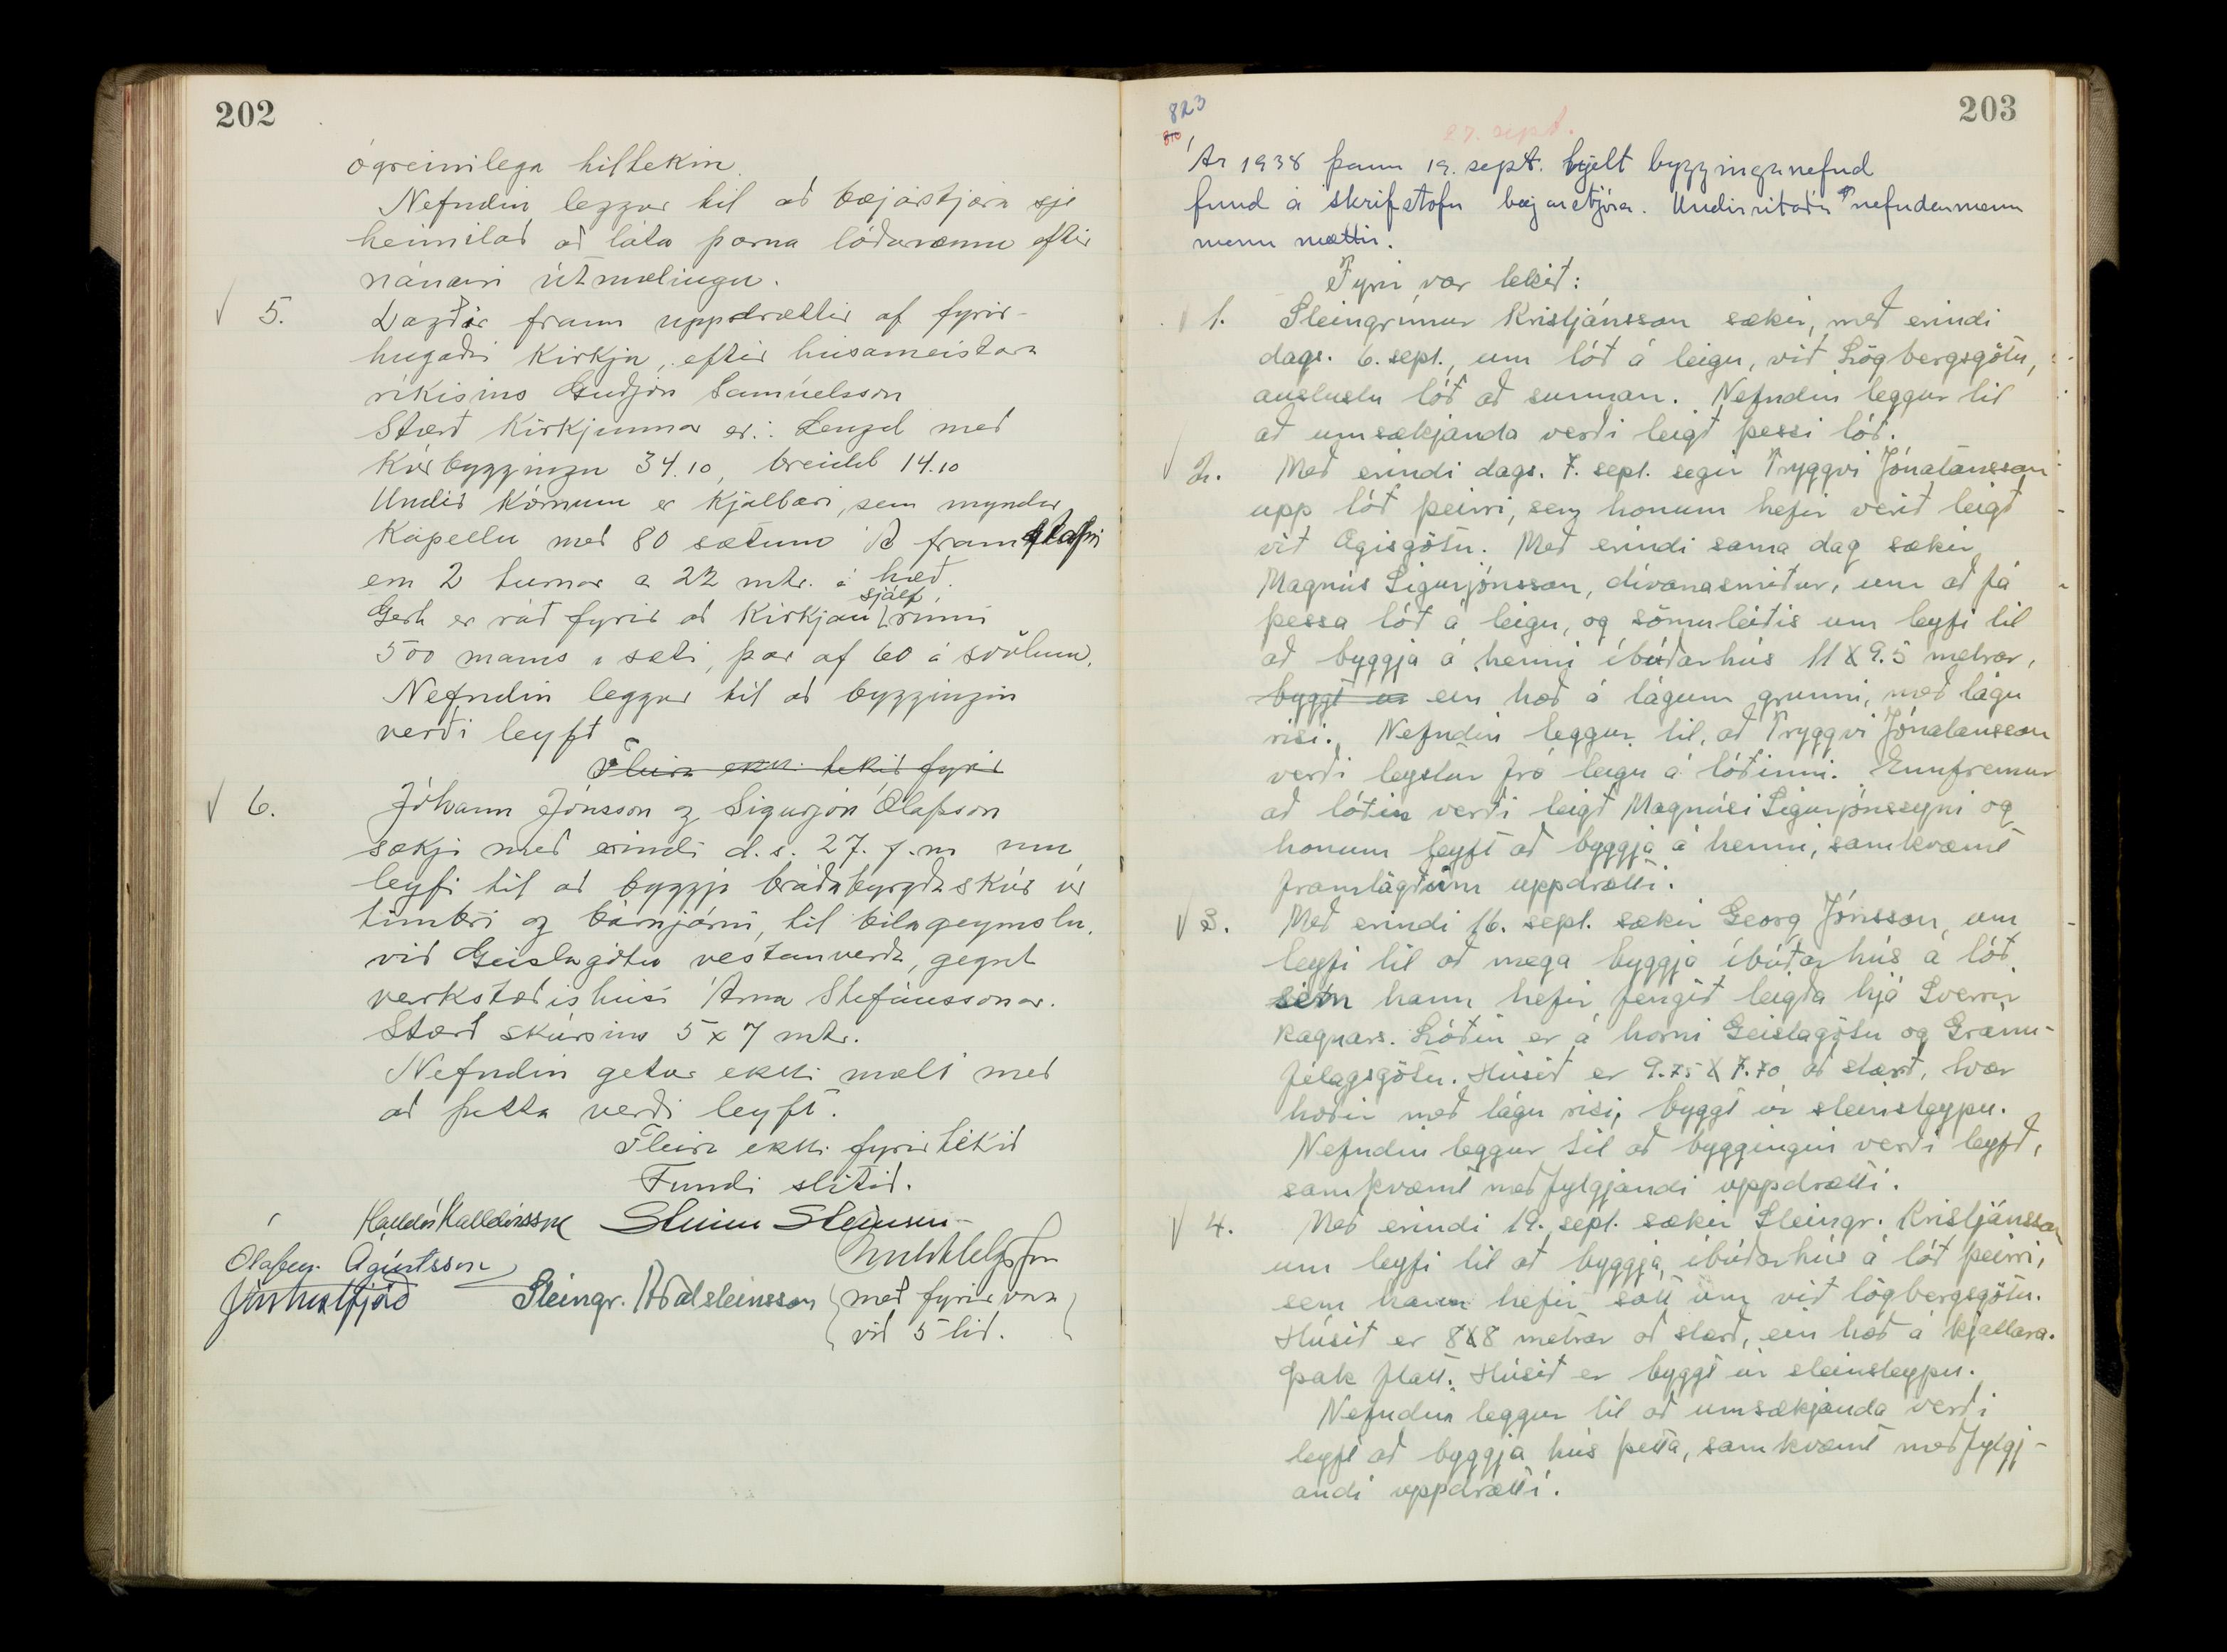 202
ógreinilega tiltekin.
Nefndin leggur til að bæjarstjóra sje
heimilað að láta þarna lóðarrönnu eftir
nánari útmælingu.
5. Lagðir fram uppdrættir af fyrir-
hugaðri kirkju, eftir húsameistara
ríkisins Guðjón Samúelsson
Stærð kirkjunnar er: Lengd með
kórbyggingu 34.10, breidd 14.10
Undir kórnum er kjallari, sem myndar
kapellu með 80 sætum Á framstafni
eru 2 turnar a 22 mtr. á hæð.
sjálf
Gert er ráð fyrir að kirkjan rúmi
500 manns í sæti, þar af 60 á svölum.
Nefndin leggur til að byggingin
verði leyfð
Fleira ekki tekið fyrir
6. Jóhann Jónsson og Sigurjón Ólafsson
sækja með erindi d.s. 27. f.m um
leyfi til að byggja bráðabyrgðaskúr úr
timbri og bárujárni, til bílageymslu,
við Geislagötu vestanverða, gegnt
verkstæðishúsi Árna Stefánssonar.
Stærð skúrsins 5 x 7 mtr.
Nefndin getur ekki mælt með
að þetta verði leyft.
Fleira ekki fyrir tekið
Fundi slitið.
Halldór Halldórsson Steinn Steinsen
Ólafur Ágústsson
Steingr. Aðalsteinsson
með fyrirvara
við 5 lið.
823
203
27. sept.
Ár 1938 þann 19. sept. hjelt byggingarnefnd
fund á skrifstofu bæjarstjóra. Undirritaðir nefndarmenn
menn mættir.
Fyrir var tekið:
1. Steingrímur Kristjánsson sækir, með erindi
dags. 6. sept., um lóð á leigu, við Lögbergsgötu,
austustu lóð að sunnan. Nefndin leggur til
að umsækjanda verði leigð þessi lóð.
2. Með erindi dags. 7. sept. segir Tryggvi Jónatansson
upp lóð þeirri, sem honum hefir verið leigð
við Ægisgötu. Með erindi sama dag sækir
Magnús Sigurjónsson, dívanasmiður, um að fá
þessa lóð á leigu, og sömuleiðis um leyfi til
að byggja á henni íbúðarhús 11 X 9.5 metrar,
byggt úr ein hæð á lágum grunni, með lágu
risi. Nefndin leggur til, að Tryggvi Jónatansson
verði leystur frá leigu á lóðinni. Ennfremur
að lóðin verði leigð Magnúsi Sigurjónssyni og
honum leyft að byggja á henni, samkvæmt
framlögðum uppdrætti.
3. Með erindi 16. sept. sækir Georg Jónsson, um
leyfi til að mega byggja íbúðarhús á lóð
sem hann hefir fengið leigða hjá Sverrir
Ragnars. Lóðin er á horni Geislagötu og Gránu-
félagsgötu. Húsið er 9.75 X 7.70 að stærð, tvær
hæðir með lágu risi, byggt úr steinsteypu.
Nefndin leggur til að byggingin verði leyfð,
samkvæmt meðfylgjandi uppdrætti.
4. Með erindi 19. sept. sækir Steingr. Kristjánsson
um leyfi til að byggja íbúðarhús á lóð þeirri,
sem hann hefir sótt um við lögbergsgötu.
Húsið er 8X8 metrar að stærð, ein hæð á kjallara.
Þak flatt. Húsið er byggt úr steinsteypu.
Nefndin leggur til að umsækjanda verði
leyft að byggja hús þetta, samkvæmt meðfylgj-
andi uppdrætti.